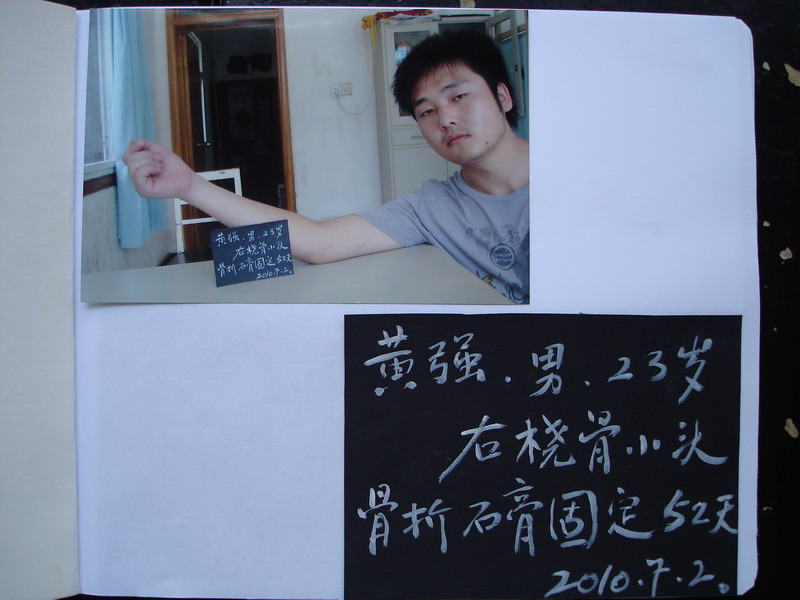 黄强.男.23岁
右桡骨小头
骨折石膏固定52天
2010.7.2。
黄强.男.23岁
右桡骨小头
骨折石膏固定52天
2010.7.2。